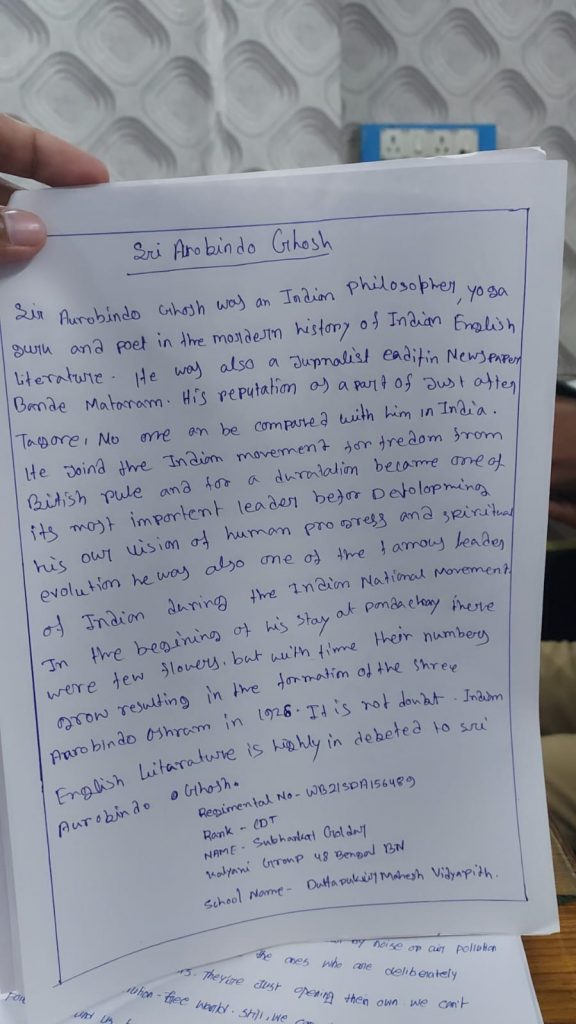 Sri Arobindo Ghosh
Sir Aurobindo Ghosh was an Indian philosopher, yoga
guru and poet in the mordern history of Indian English
literature. He was also a Jurnalist eaditin Newspaper
Bande Mataram. His reputation as a part of Just after
Tagore, No one an be compared with him in India.
He Joind the Indian movement for fredom from
British rule and for a duratation became one of
its most importent leader befor Devoloping
his our vision of human progress and spiritual
evolution he was also one of the famous leader
of Indian during the Indian National Movement
In the begining of his stay at pondachary there
were few flowers, but with time their numbers
grow resulting in the formation of the shree
Aarobindo Oshram in 1926. It is not doubt. Indian
English Litarature is highly in debeted to sri
Aurobindo Ghosh.
Regimental No - WB21SDA156489
Rank - CDT
NAME - Subhankar Goldar
Kalyani Group 48 Bengal BN
School Name - Duttapukur Mahesh Vidyapith.
by noise or air pollution
the ones who are deliberately
They're Just opening then own we can't
lution-free world. still, we